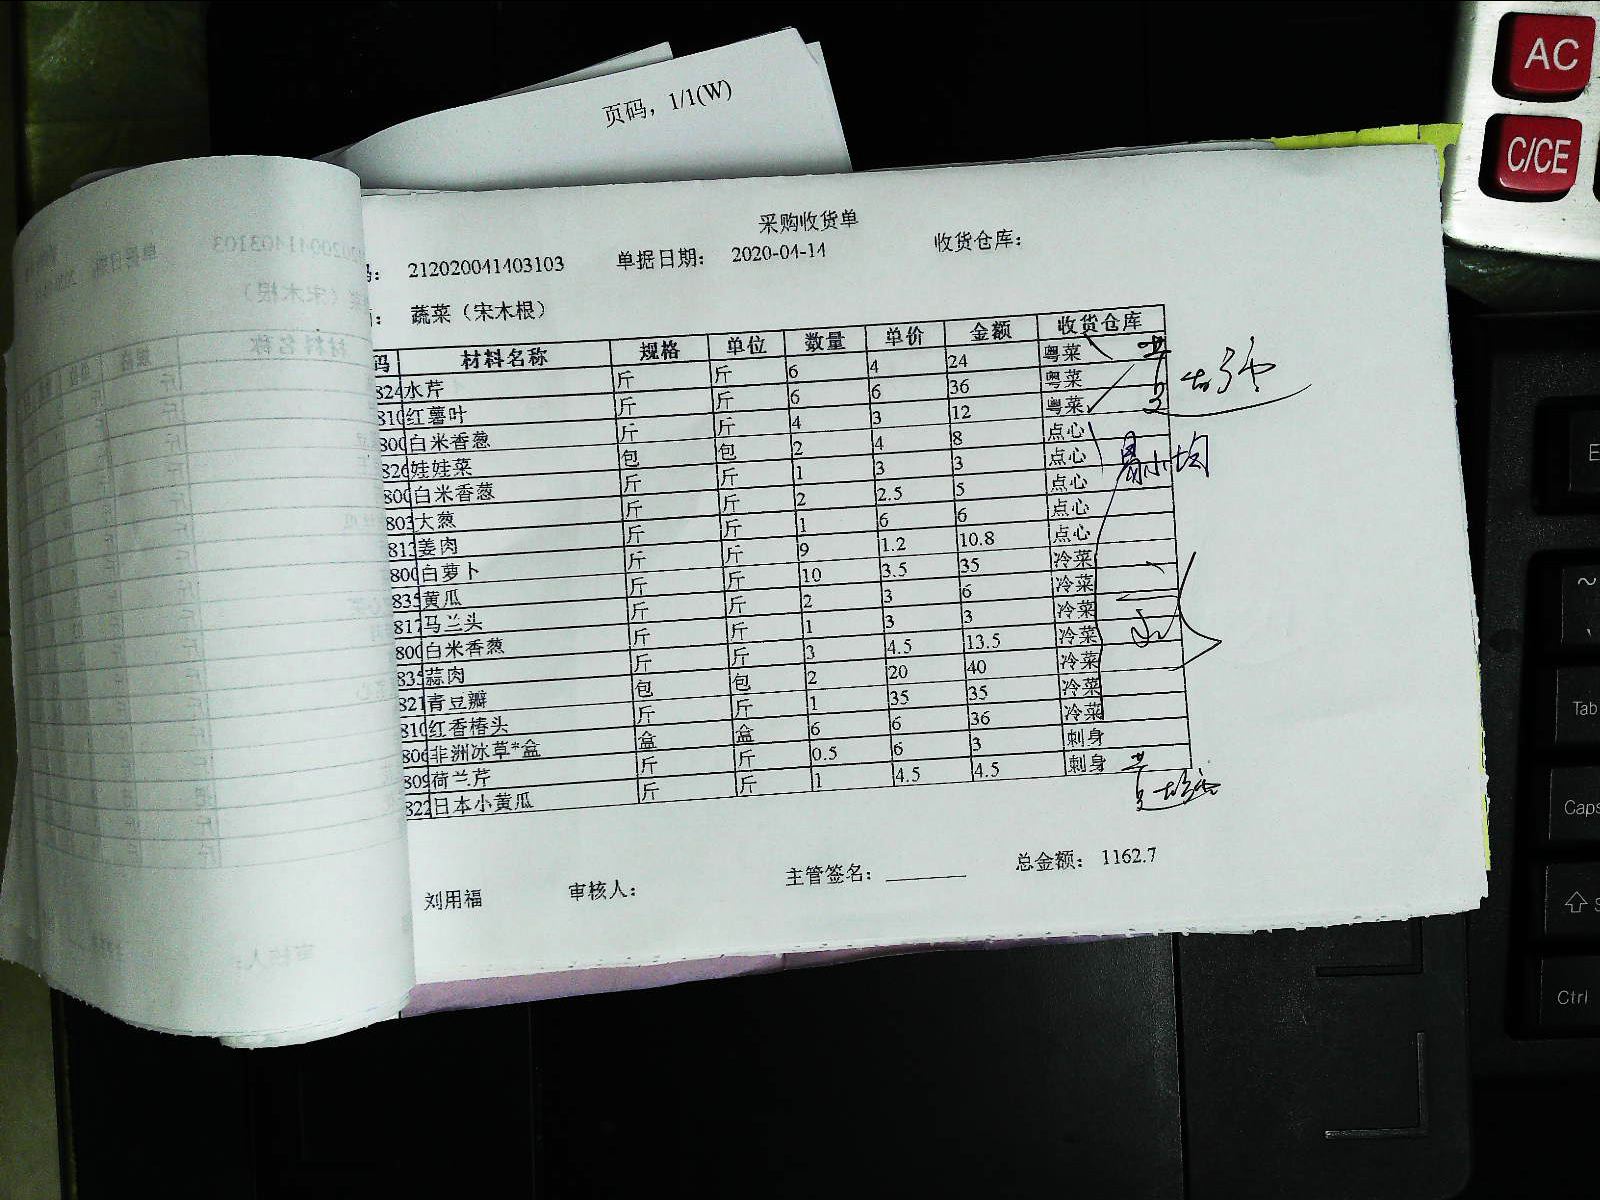 页码，1/1(W)
采购收货单
212020041403103 单据日期： 2020-04-14 收货仓库：
蔬菜（宋木根）
码 材料名称 规格 单位 数量 单价 金额 收货仓库
824 水芹 斤 斤 6 4 24 粤菜
810 红薯叶 斤 斤 6 6 36 粤菜
800 白米香葱 斤 斤 4 3 12 粤菜
826 娃娃菜 包 包 2 4 8 点心
800 白米香葱 斤 斤 1 3 3 点心
803 大葱 斤 斤 2 2.5 5 点心
813 姜肉 斤 斤 1 6 6 点心
800 白萝卜 斤 斤 9 1.2 10.8 点心
835 黄瓜 斤 斤 10 3.5 35 冷菜
817 马兰头 斤 斤 2 3 6 冷菜
800 白米香葱 斤 斤 1 3 3 冷菜
835 蒜肉 斤 斤 3 4.5 13.5 冷菜
821 青豆瓣 包 包 2 20 40 冷菜
810 红香椿头 斤 斤 1 35 35 冷菜
806 非洲冰草*盒 盒 盒 6 6 36 冷菜
809 荷兰芹 斤 斤 0.5 6 3 刺身
822 日本小黄瓜 斤 斤 1 4.5 4.5 刺身
刘用福 审核人： 主管签名：_______ 总金额： 1162.7
AC
C/CE
Tab
Caps
Ctrl